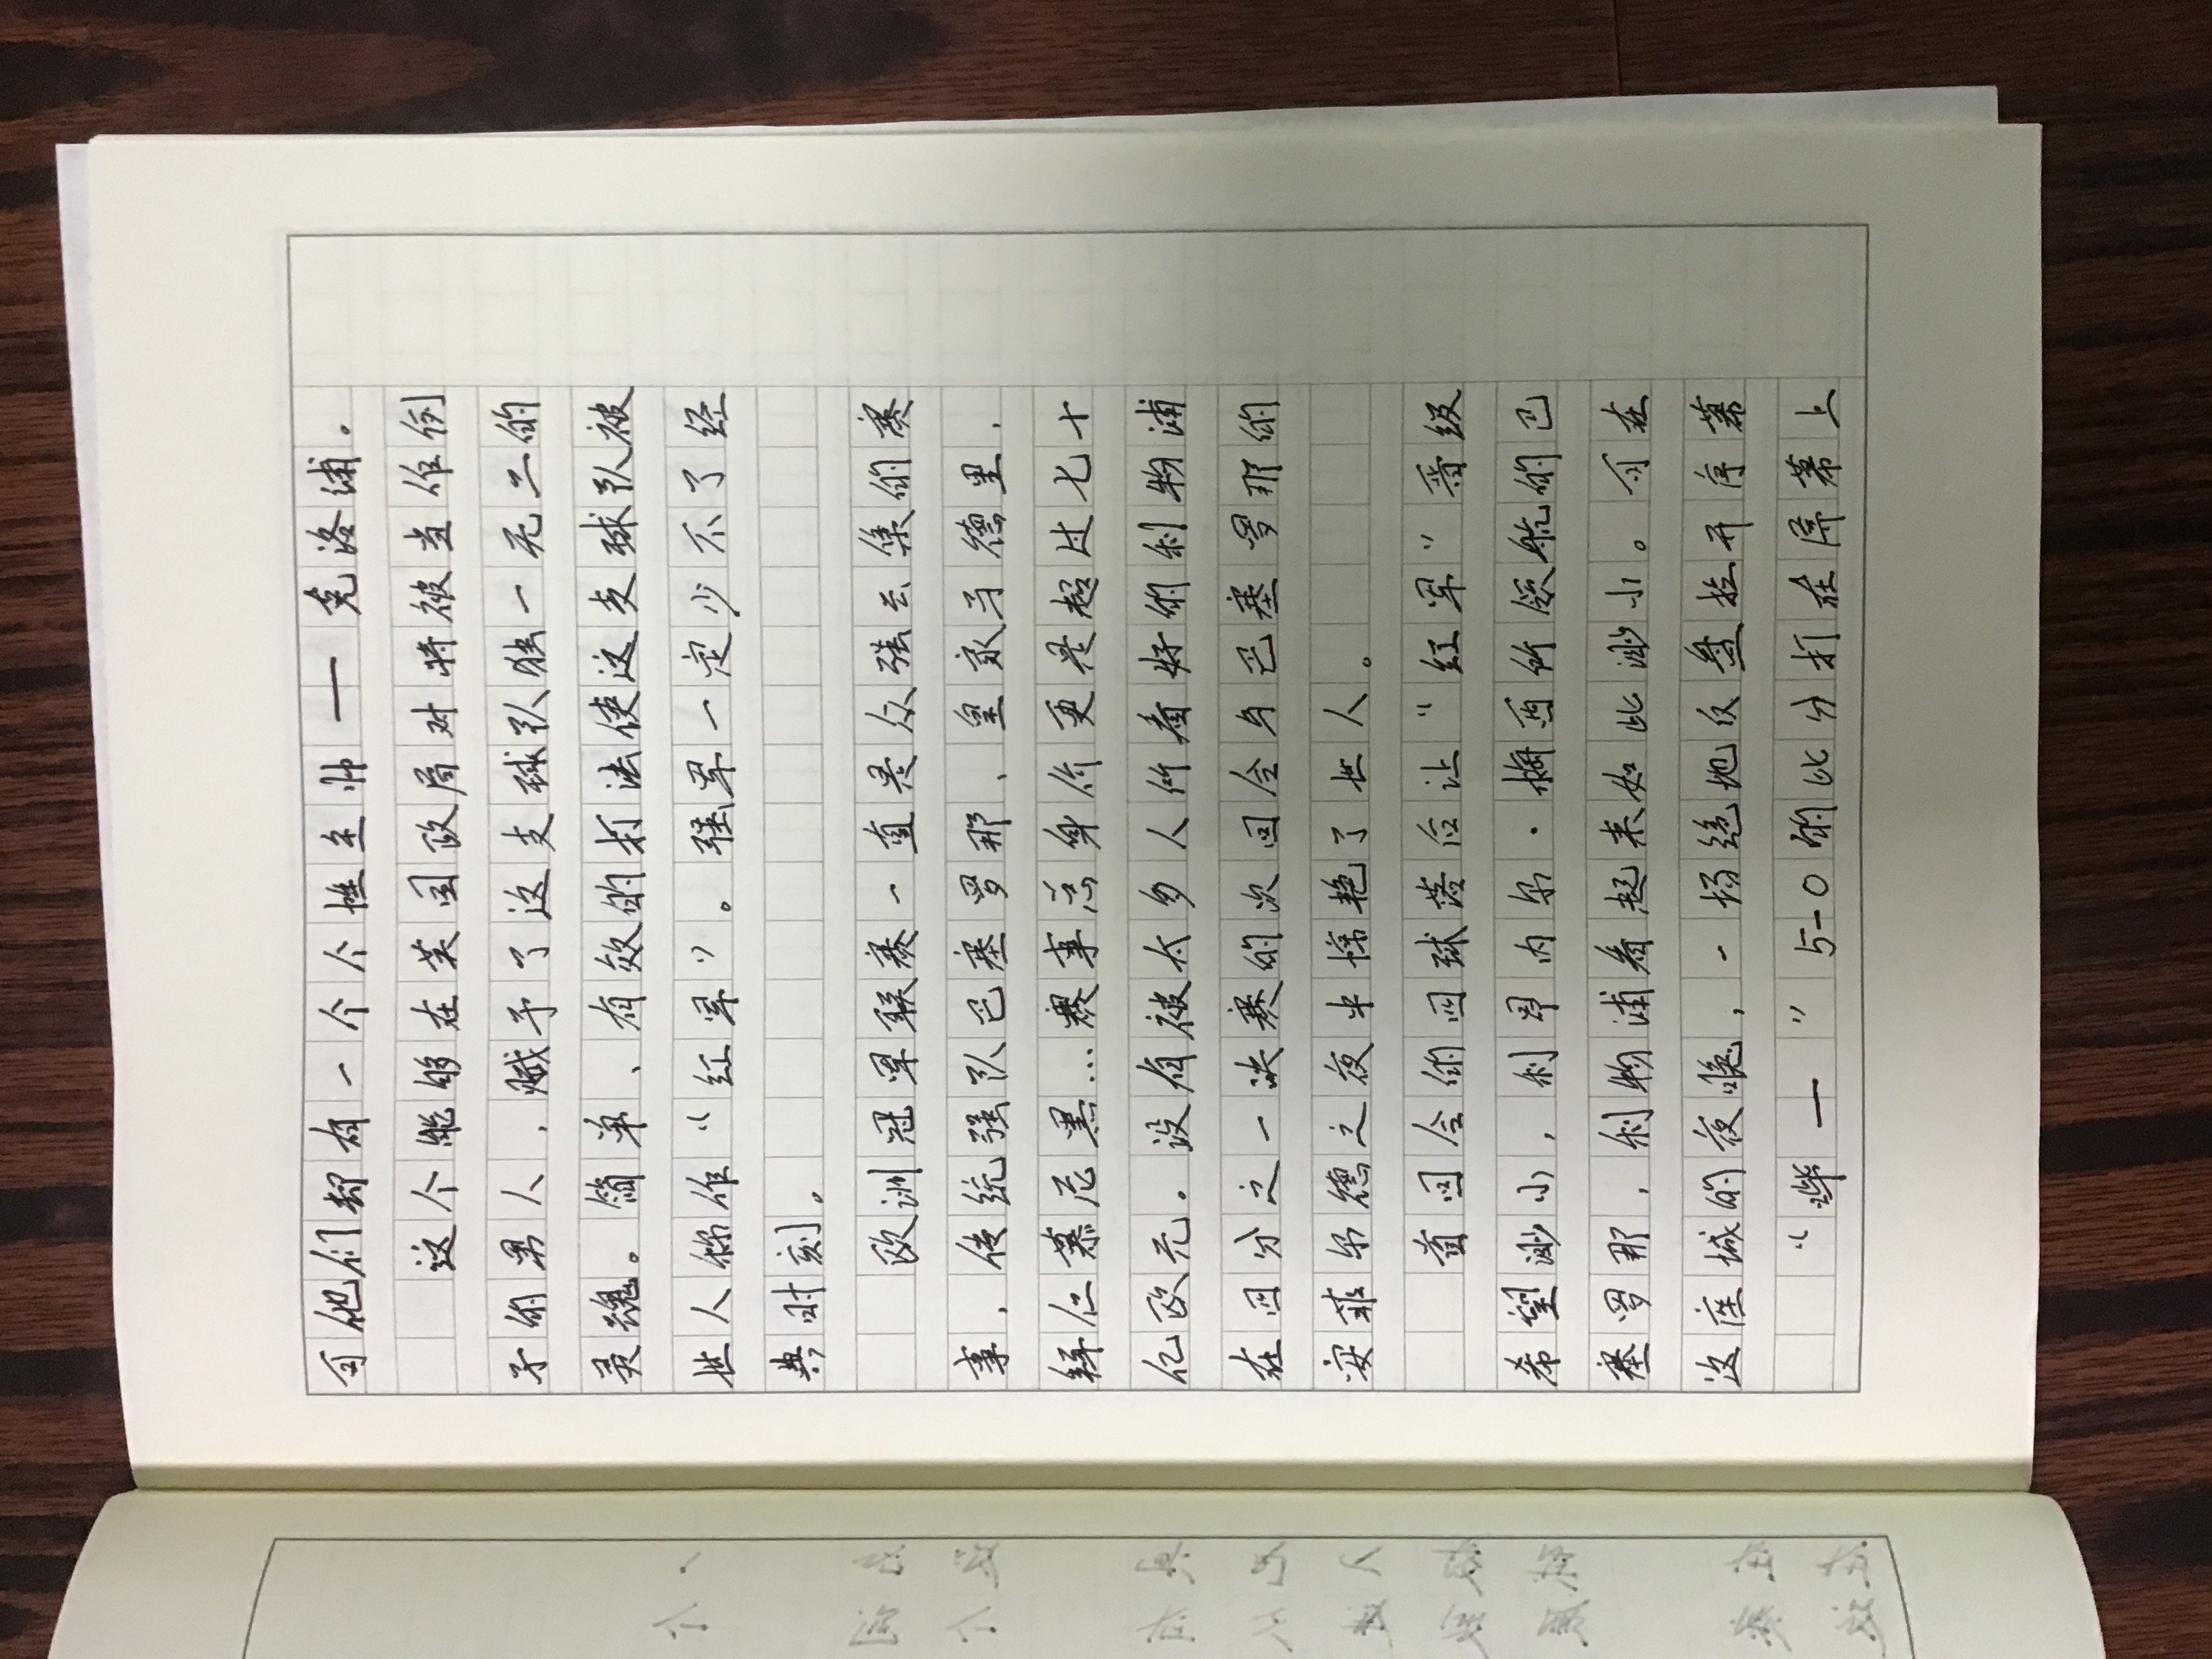 可他们却有一个个挫主帅——克洛浦。
这个能够在英国政局对峙被当作例
子的男人，赋予了这支球队独一无二的
灵魂。简单、有效的打法使这支球队被
世人称作“红军”。强军一定少不了经
典时刻。
欧洲冠军联赛一直是众强云集的赛
事，传统强队巴塞罗那、皇家马德里，
拜仁慕尼黑…赛事总身价更是超过七十
亿欧元。没有被太多人所看好的利物浦
在四分之一决赛的次回合与巴塞罗那的
安菲尔德之夜中惊艳了世人。
首回合的四球落后让“红军”晋级
希望渺小，利昂内尔·梅西所领航的巴
塞罗那，利物浦看起来如此渺小。可在
这座城的夜晚，一场绝地反盘拉开序幕
“哗——”5-0的比分打在屏幕上